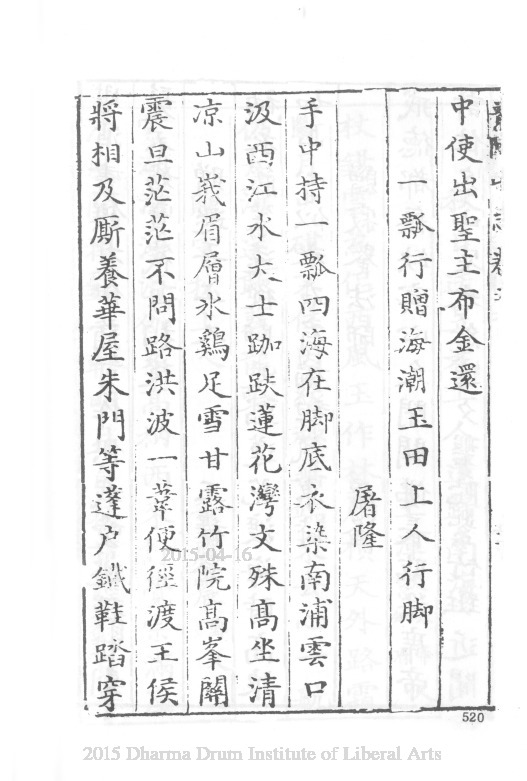 中使出聖主布金還
一瓢行贈海潮玉田上人行脚
屠隆
手中持一瓢四海在脚底衣染南浦雲口
汲西江水大士跏趺蓮花灣文殊髙坐清
凉山峩眉層氷鷄足雪甘露竹院髙峯關
震旦茫茫不問路洪波一葦便徑渡王侯
將相及厮養華屋朱門等蓬户鐵鞋踏穿
520
2015-04-16
2015 Dharma Drum Institute of Liberal Arts